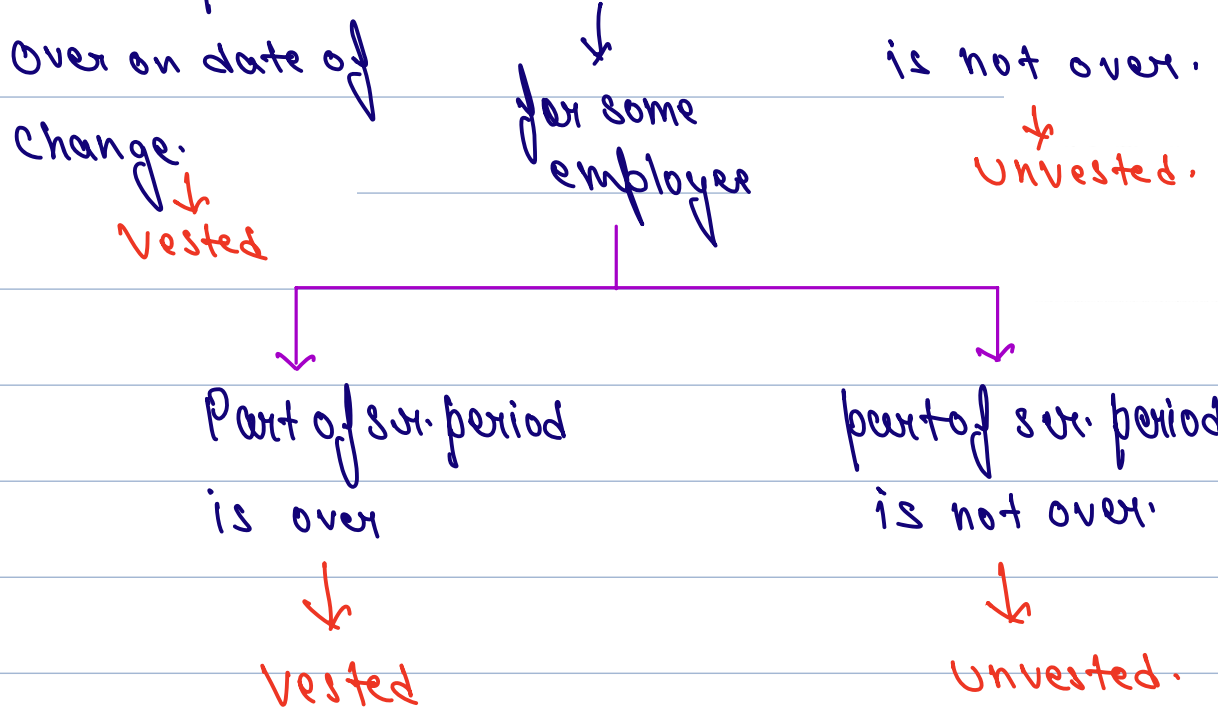 over on date of
change.
Vested
for some
employee
is not over.
Unvested.
Part of sr. period
is over
Vested
part of sr. period
is not over.
Unvested.